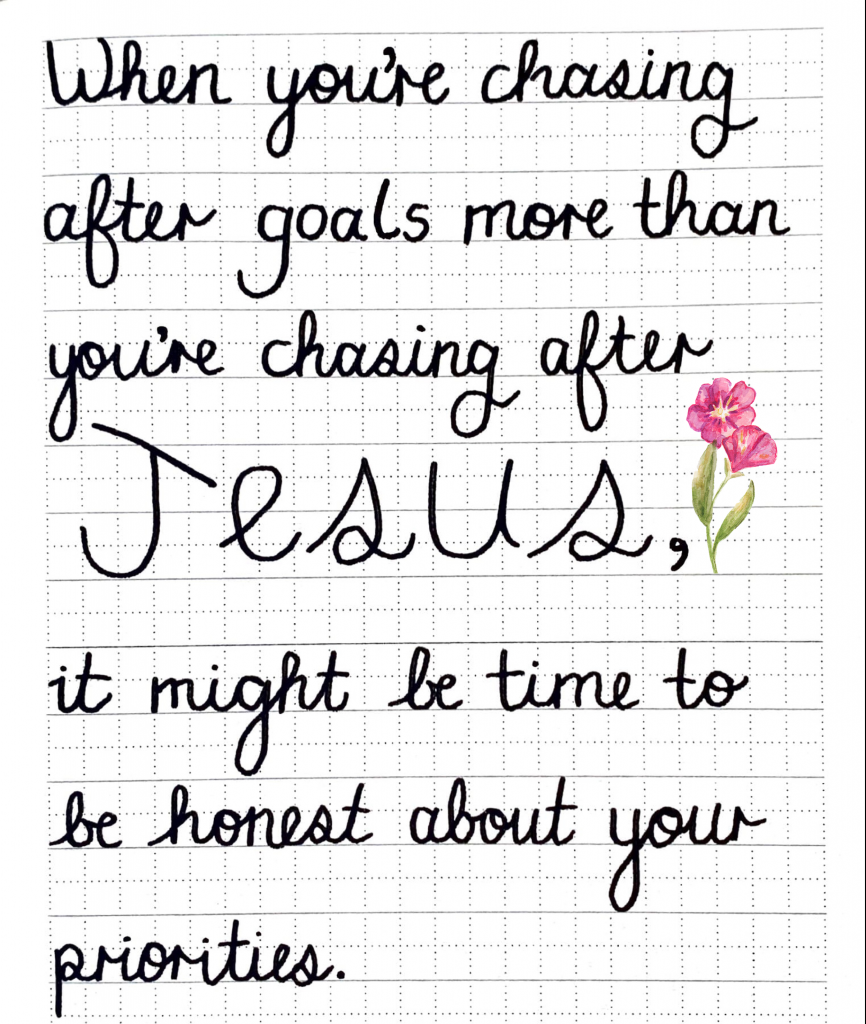 When you're chasing
after goals more than
you're chasing after
Jesus,
it might be time to
be honest about your
priorities.